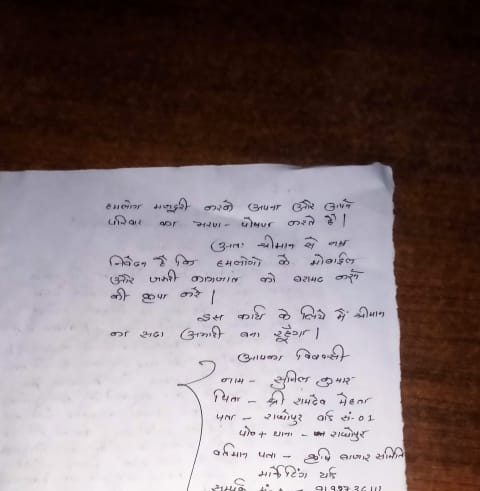 हमलोग मजदुरी करके अपना और अपने
परिवार का भरण - पोषण करते है |
अतः श्रीमान से नम्र
निवेदन है कि हमलोगो के मोबाईल
और जरुरी कागजात को बरामद करने
की कृपा करे |
इस कार्य के लिये मैं श्रीमान
का सदा अभारी बना रहूँगा |
आपका विश्वासी
नाम - सुनिल कुमार
पिता - श्री रामदेव मेहता
पता - राघोपुर वार्ड सं.-01
पो० + थाना - राघोपुर
वर्तमान पता - कृषि बाजार समिति
मार्केटिंग यार्ड
सम्पर्क